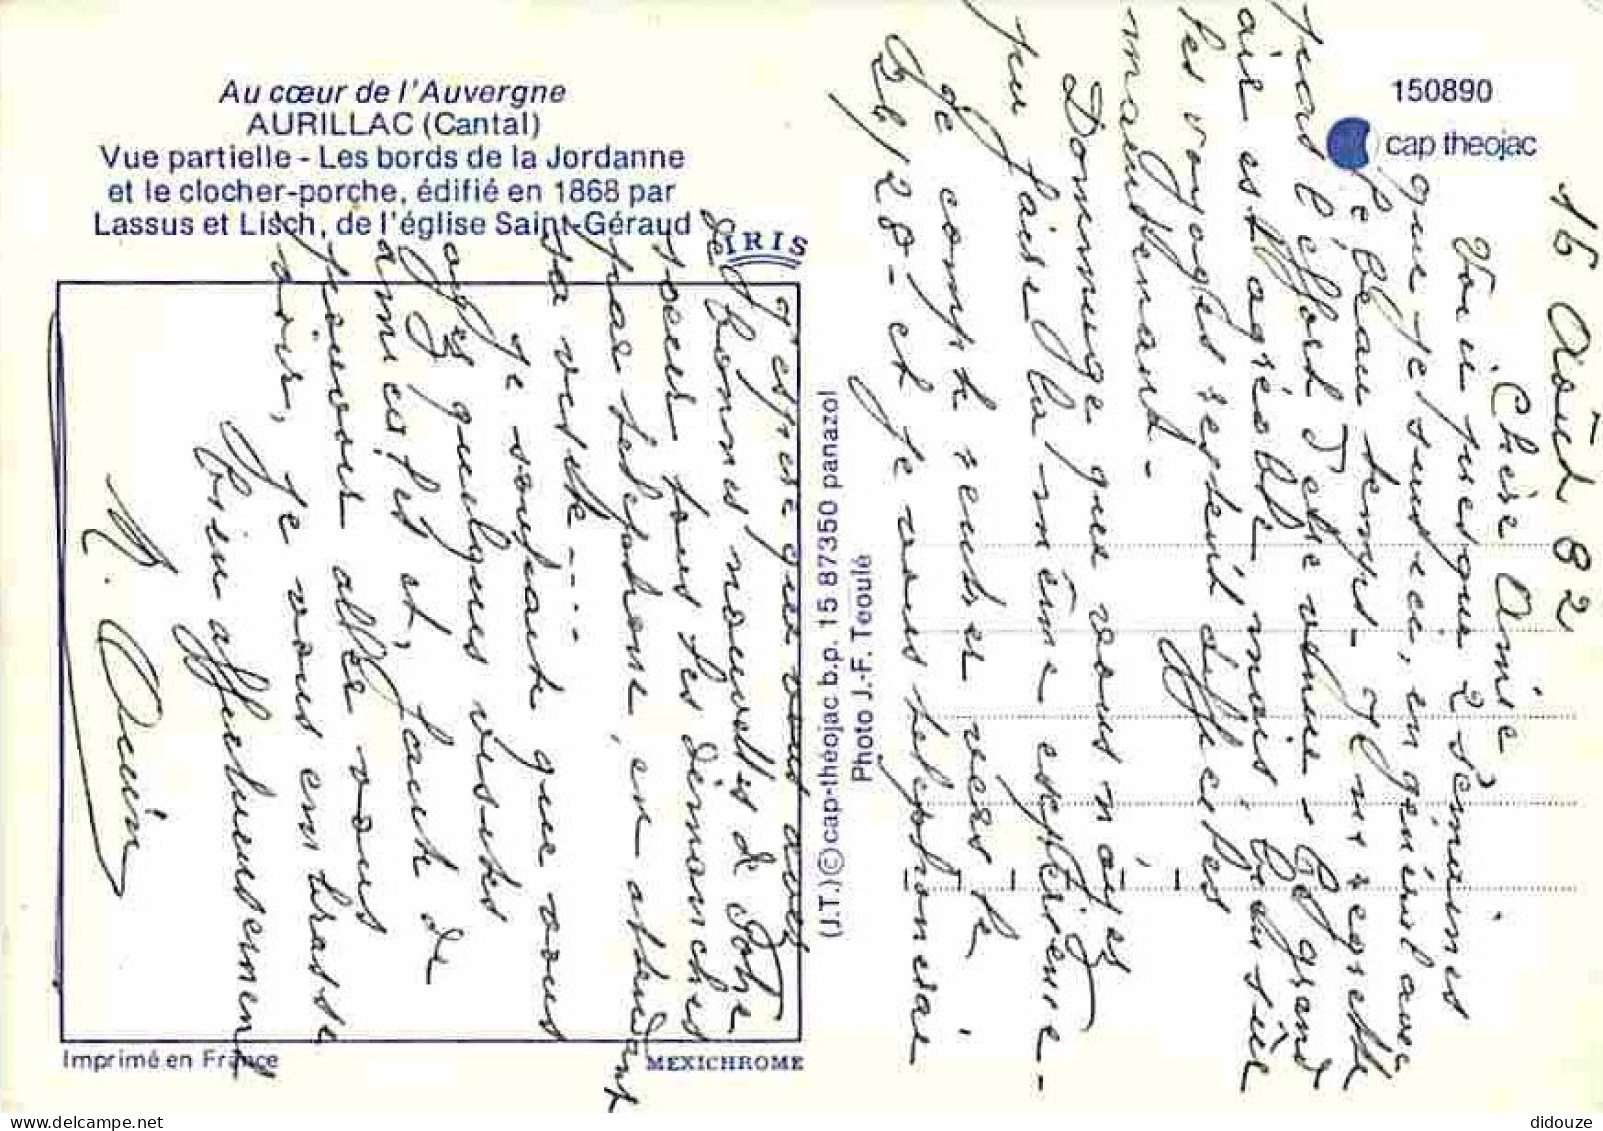 Au cœur de l'Auvergne
AURILLAC (Cantal)
Vue partielle - Les bords de la Jordanne
et le clocher-porche, édifié en 1868 par
Lassus et Lisch, de l'église Saint-Géraud
IRIS
150890
cap theojac
15 Août 82
Chère Amie
Voici presque 2 semaines
que je suis ici, en général avec
le beau temps - Je ne regrette
pas l'effort d'être venue - Le grand
air est agréable, mais, bien sûr
les voyages restent difficiles
maintenant -
Dommage que vous n'ayez
pu faire la même expérience -
Je compte rentrer vers le
26/28 - et je vous téléphonerai
J'espère que vous avez
de bonnes nouvelles de votre
soeur tous les dimanches
par téléphone, en attendant
sa visite - ...
Je souhaite que vous
ayez quelques visites
amies et, faute de
pouvoir aller vous
voir, je vous embrasse
bien affectueusement
(J.T.) © cap-théojac b.p. 15 87350 panazol
Photo J.-F. Teoulé
Imprimé en France
MEXICHROME
didouze